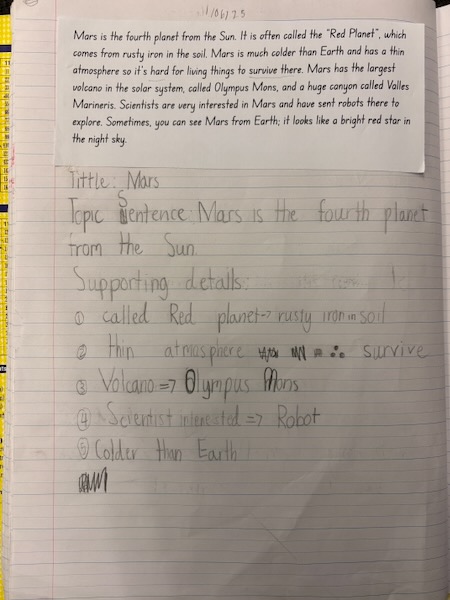 11/06/25
Mars is the fourth planet from the Sun. It is often called the "Red Planet", which
comes from rusty iron in the soil. Mars is much colder than Earth and has a thin
atmosphere so it's hard for living things to survive there. Mars has the largest
volcano in the solar system, called Olympus Mons, and a huge canyon called Valles
Marineris. Scientists are very interested in Mars and have sent robots there to
explore. Sometimes, you can see Mars from Earth; it looks like a bright red star in
the night sky.
Tittle: Mars
Topic Sentence: Mars is the fourth planet
from the Sun.
Supporting details:
① called Red planet → rusty iron in soil
② thin atmosphere ∴ survive
③ Volcano => Olympus Mons
④ Scientist interested => Robot
⑤ Colder than Earth